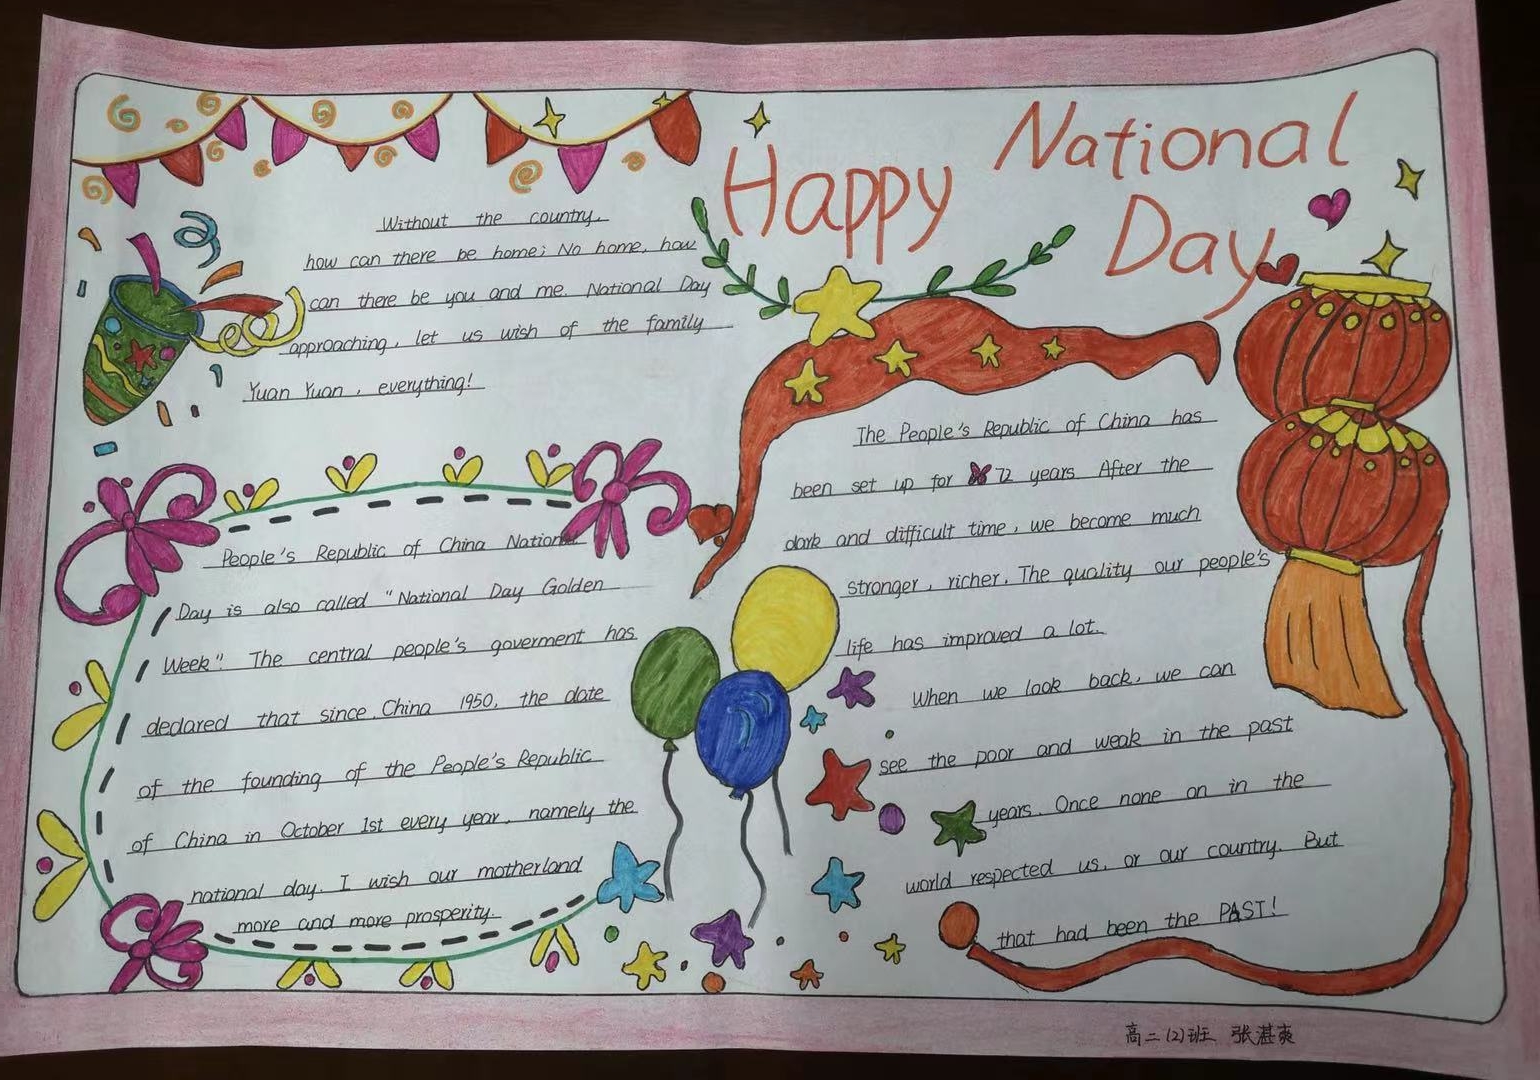 Happy National
Day
Without the country,
how can there be home; No home, how
can there be you and me. National Day
approaching, let us wish of the family
Yuan Yuan, everything!
People's Republic of China National
Day is also called "National Day Golden
Week". The central people's goverment has
declared that since China 1950, the date
of the founding of the People's Republic
of China in October 1st every year, namely the
national day. I wish our motherland
more and more prosperity.
The People's Republic of China has
been set up for 72 years After the
dark and difficult time, we become much
stronger, richer. The quality our people's
life has improved a lot.
When we look back, we can
see the poor and weak in the past
years. Once none on in the
world respected us, or our country. But
that had been the PAST!
高二(2)班 张湛爽